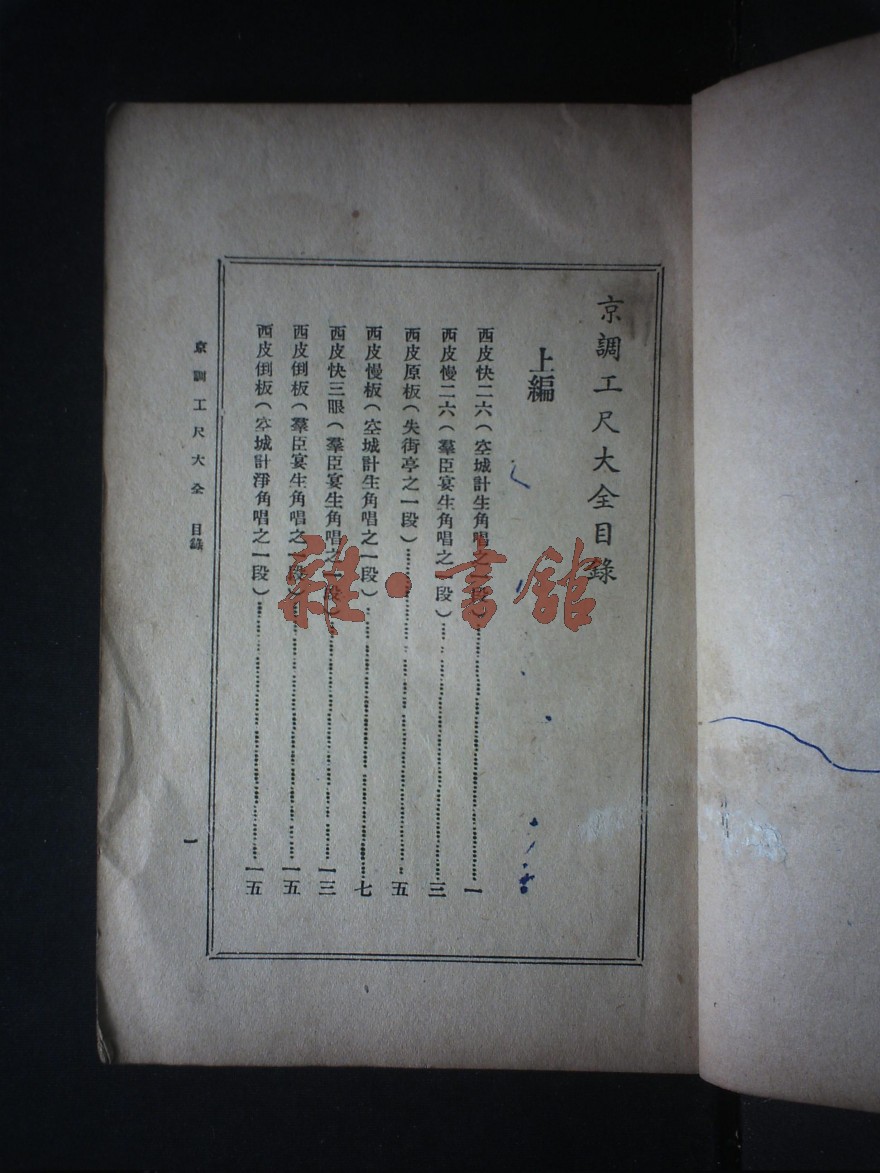 京調工尺大全目錄
上編
西皮快二六（空城計生角唱之一段）一
西皮慢二六（羣臣宴生角唱之一段）三
西皮原板（失街亭之一段）五
西皮慢板（空城計生角唱之一段）七
西皮快三眼（羣臣宴生角唱之一段）一三
西皮倒板（羣臣宴生角唱之一段）一五
西皮倒板（空城計淨角唱之一段）一五
京調工尺大全 目錄
一
雜·書館